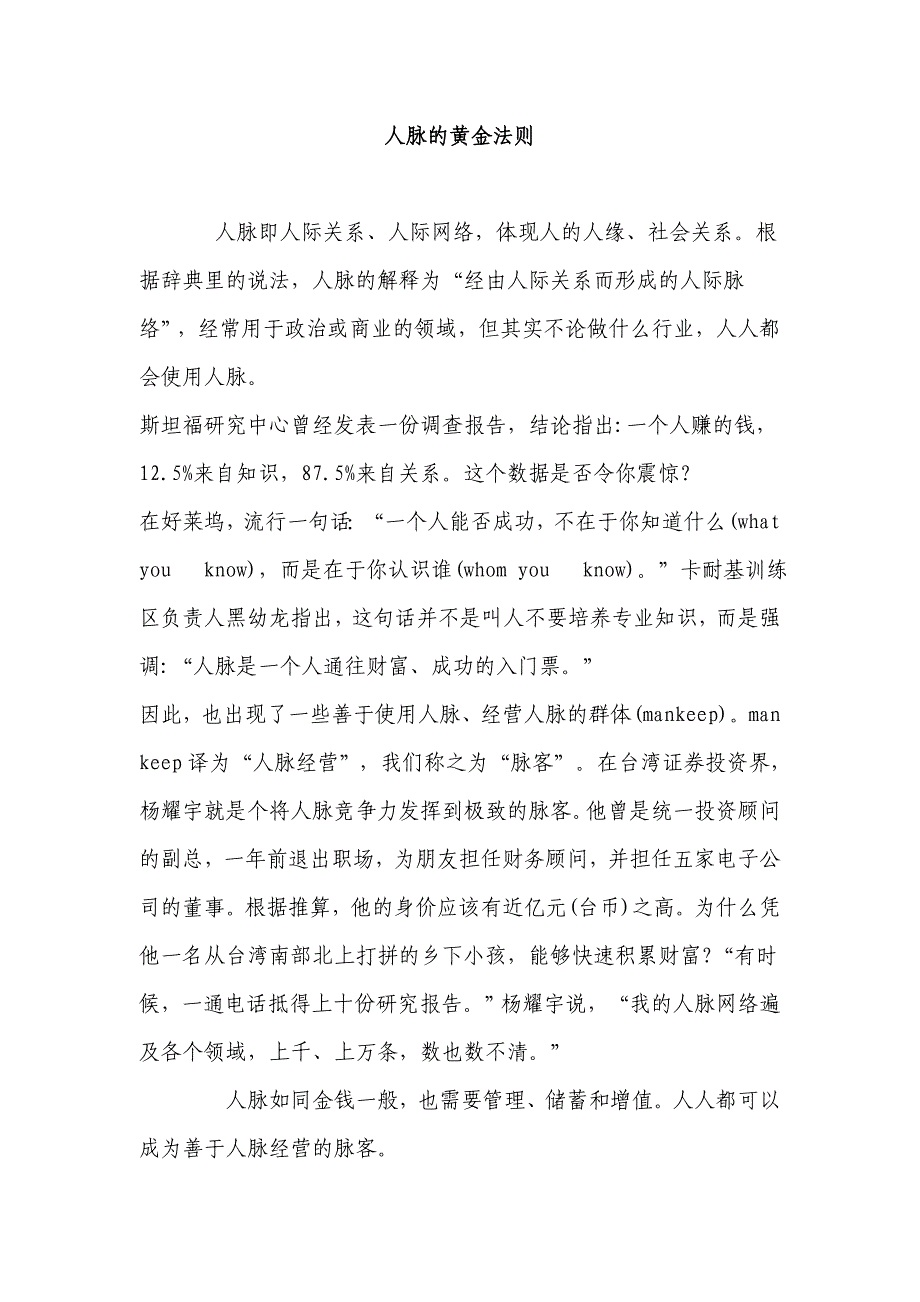 人脉的黄金法则
人脉即人际关系、人际网络，体现人的人缘、社会关系。根
据辞典里的说法，人脉的解释为“经由人际关系而形成的人际脉
络”，经常用于政治或商业的领域，但其实不论做什么行业，人人都
会使用人脉。
斯坦福研究中心曾经发表一份调查报告，结论指出:一个人赚的钱，
12.5%来自知识，87.5%来自关系。这个数据是否令你震惊？
在好莱坞，流行一句话：“一个人能否成功，不在于你知道什么(what
you know)，而是在于你认识谁(whom you know)。”卡耐基训练
区负责人黑幼龙指出，这句话并不是叫人不要培养专业知识，而是强
调:“人脉是一个人通往财富、成功的入门票。”
因此，也出现了一些善于使用人脉、经营人脉的群体(mankeep)。man
keep译为“人脉经营”，我们称之为“脉客”。在台湾证券投资界，
杨耀宇就是个将人脉竞争力发挥到极致的脉客。他曾是统一投资顾问
的副总，一年前退出职场，为朋友担任财务顾问，并担任五家电子公
司的董事。根据推算，他的身价应该有近亿元(台币)之高。为什么凭
他一名从台湾南部北上打拼的乡下小孩，能够快速积累财富？“有时
候，一通电话抵得上十份研究报告。”杨耀宇说，“我的人脉网络遍
及各个领域，上千、上万条，数也数不清。”
人脉如同金钱一般，也需要管理、储蓄和增值。人人都可以
成为善于人脉经营的脉客。